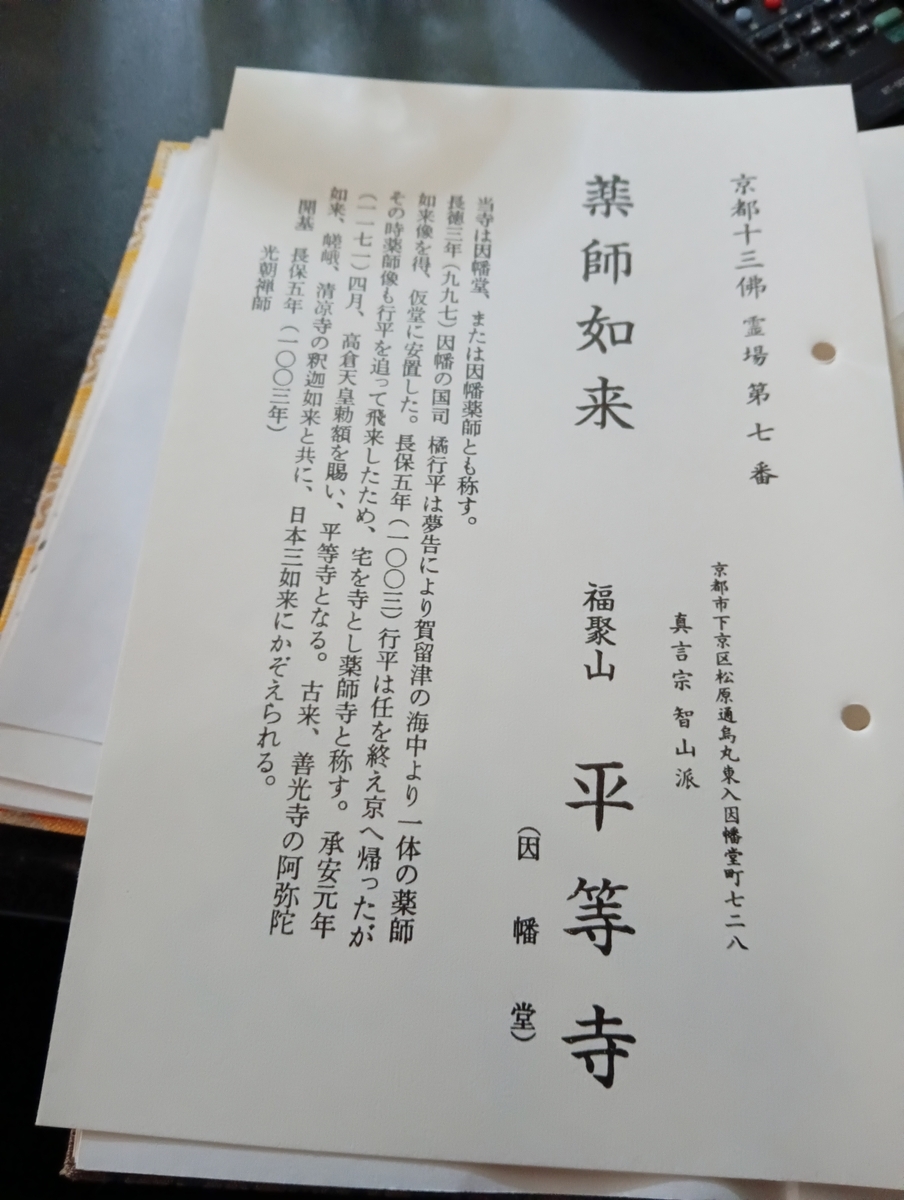 京都十三佛霊場第七番
京都市下京区松原通烏丸東入因幡堂町七二八
真言宗智山派
薬師如来
福聚山 平等寺
（因幡堂）
当寺は因幡堂、または因幡薬師とも称す。
長徳三年（九九七）因幡の国司 橘行平は夢告により賀留津の海中より一体の薬師
如来像を得、仮堂に安置した。長保五年（一〇〇三）行平は任を終え京へ帰ったが
その時薬師像も行平を追って飛来したため、宅を寺とし薬師寺と称す。承安元年
（一一七一）四月、高倉天皇勅額を賜い、平等寺となる。古来、善光寺の阿弥陀
如来、嵯峨、清凉寺の釈迦如来と共に、日本三如来にかぞえられる。
開基 長保五年（一〇〇三年）
光朝禅師